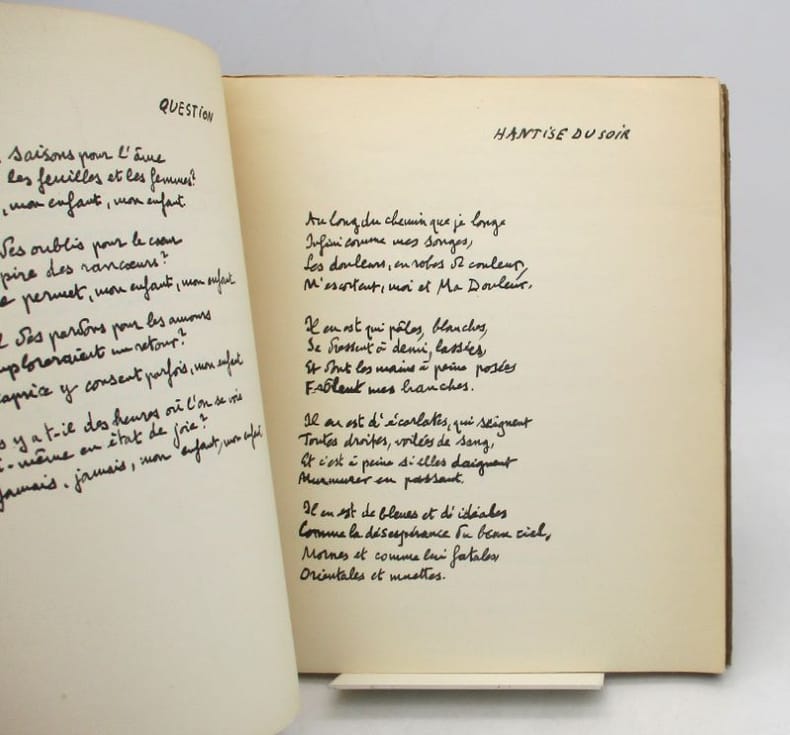 QUESTION
saisons pour l'âme
les feuilles et les femmes?
, mon enfant, mon enfant.
des oublis pour le cœur
pire des rancœurs?
permet, mon enfant, mon enfant
des pardons pour les amours
imploreraient un retour?
caprice y consent parfois, mon enfant
s y a t-il des heures où l'on se voit
-même en état de joie?
Jamais, jamais, mon enfant, mon enfant
HANTISE DU SOIR
Au long du chemin que je longe
Infini comme mes songes,
Les douleurs, en robes de couleur,
M'escortent, moi et Ma Douleur.
Il en est qui pâles, blanches,
Se dressent à demi, lassées,
Et dont les mains à peine posées
Frôlent mes hanches.
Il en est d'écarlates, qui saignent
Toutes droites, voilées de sang,
Et c'est à peine si elles daignent
Murmurer en passant.
Il en est de bleues et d'idéales
Comme la désespérance du beau ciel,
Mornes et comme lui fatales,
Orientales et muettes.